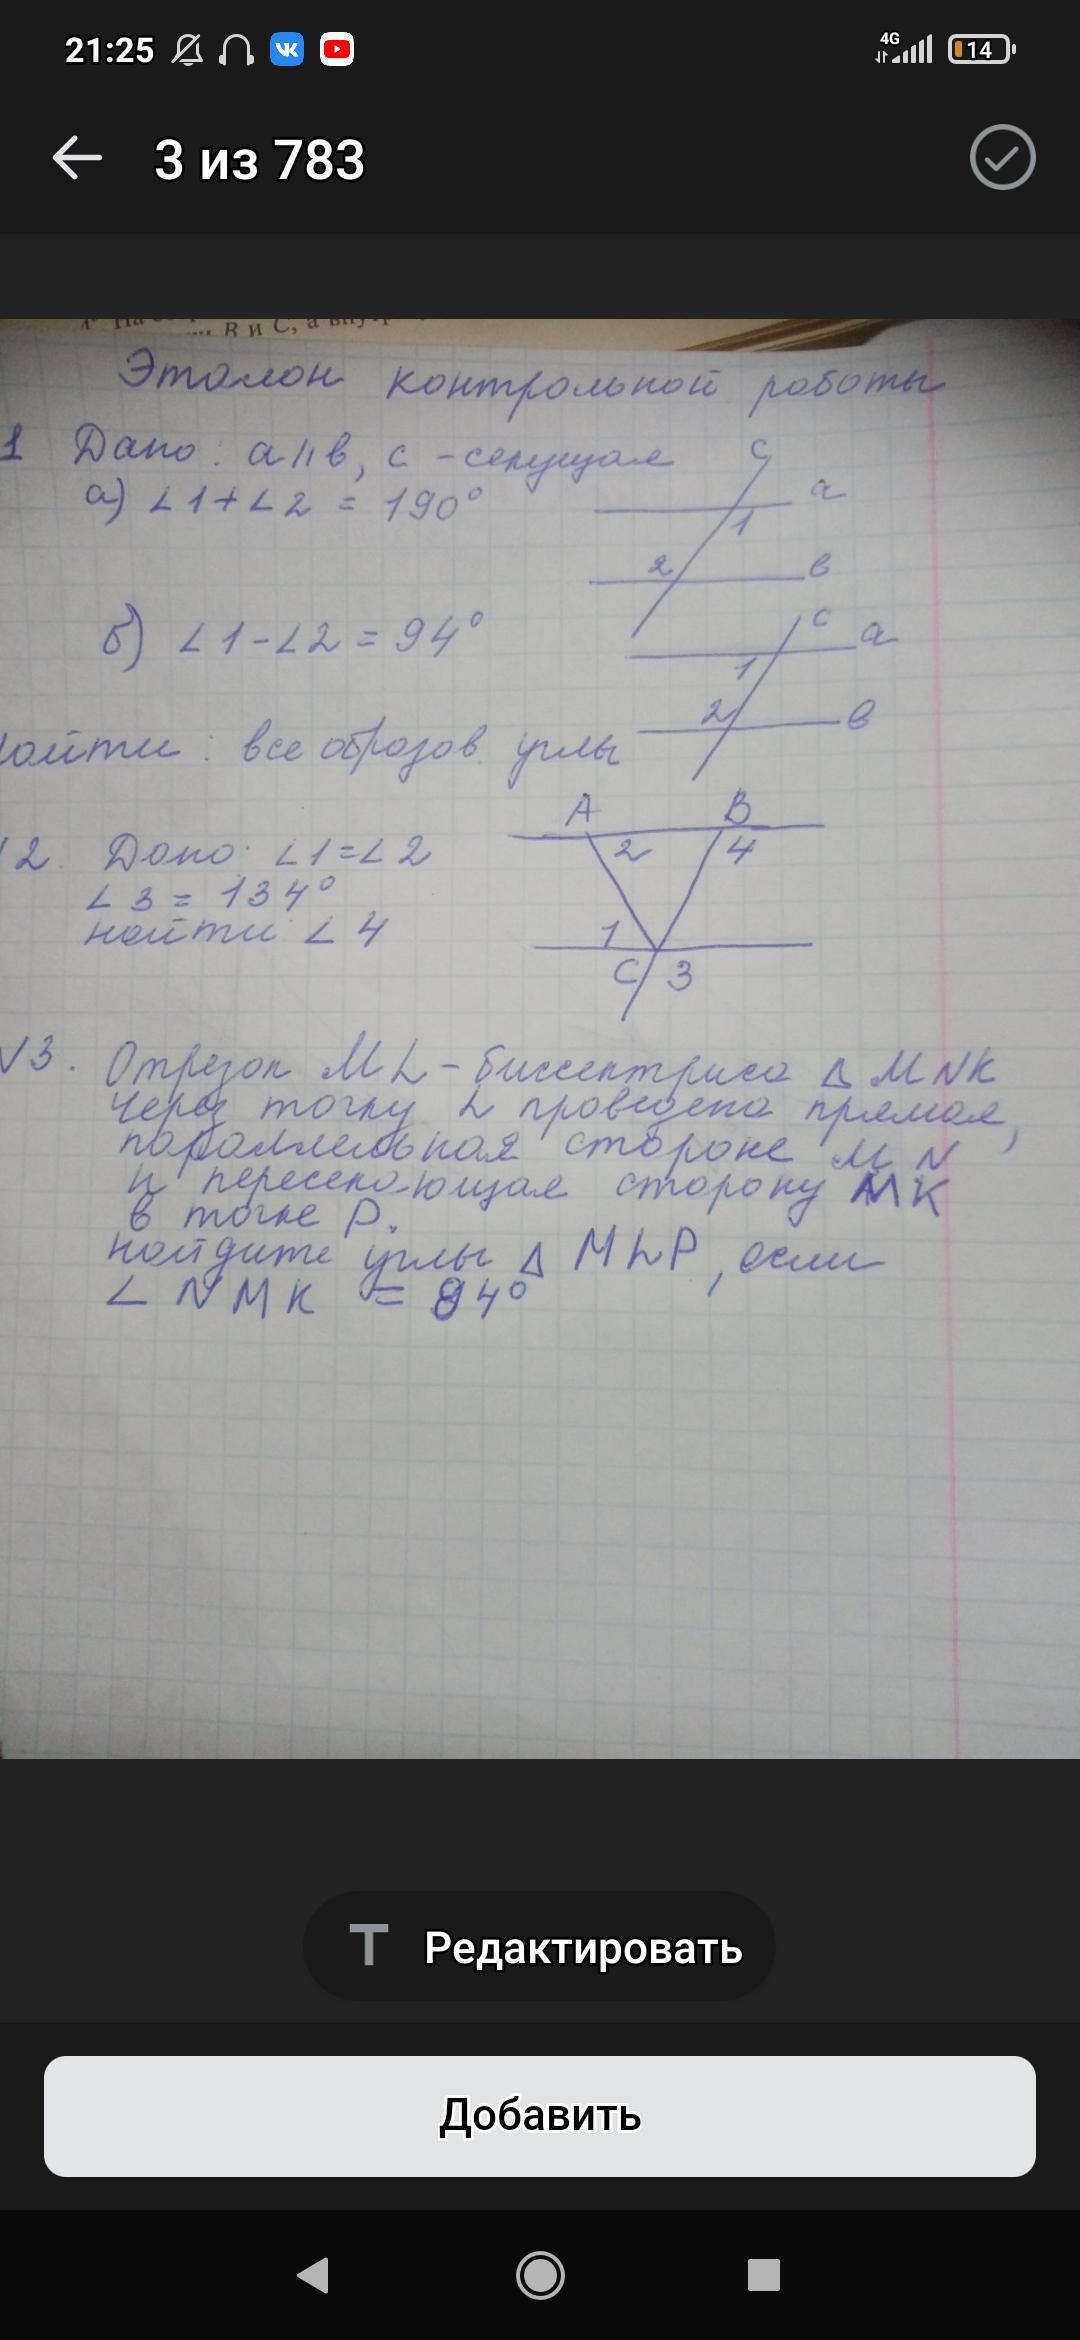 21:25
4G
14
3 из 783
B и C, а внут
Эталон контрольной работы
1 Дано: a||b, c - секущая
а) ∠1+∠2 = 190°
c
a
1
2
в
б) ∠1-∠2 = 94°
c
a
1
2
в
Найти: все образов. углы
A B
№2. Дано: ∠1=∠2
2 4
∠3 = 134°
найти ∠4
1
C 3
№3. Отрезок ML - биссектриса Δ MNK
Через точку L проведена прямая,
параллельная стороне MN
и пересекающая сторону MK
в точке P.
найдите углы Δ MLP, если
∠ NMK = 84°
Редактировать
Добавить